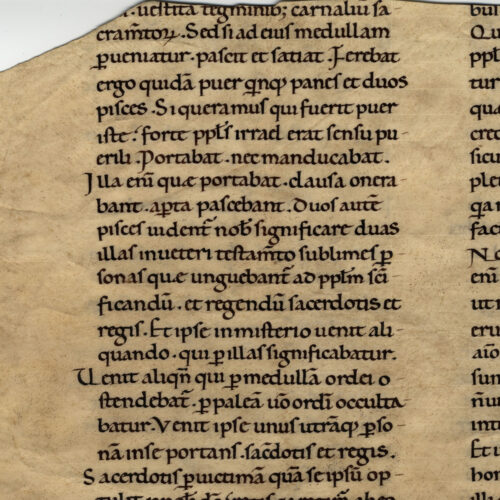 uestita tegminib; carnaliu sa
cram̄toꝝ. Sed si ad eius medullam
ꝑueniatur. pascit et satiat. Ferebat
ergo quidā puer qinq panes et duos
pisces. Si queramus qui fuerit puer
iste. forte ppłs israel erat sensu pu
erili. Portabat. nec manducabat.
Illa enī quæ portabat. clausa onera
bant. aꝑta pascebant. Duos autē
pisces uident̄ nob significare duas
illas in ueteri testam̄to sublimes ꝑ
sonas quæ unguebant̄ ad ppłm scī
ficandū. et regendū sacerdotis et
regis. Et ipse in misterio uenit ali
quando. qui ꝑ illas significabatur.
Uenit aliqn̄ qui ꝑ medullā ordei o
stendebat̄. ꝑ paleā uō ordei occulta
batur. Venit ipse unus utrāq ꝑso
nā in se portans. sac̄dotis et regis.
Sacerdotis ꝑ uictimā quā se ipsū op
bui
Qu
ppł
tur
quæ
cred
sicu
plet
qa
fact
No
enī
ut
eru
aīo
sun
n̄
int
Et i
hom
illi